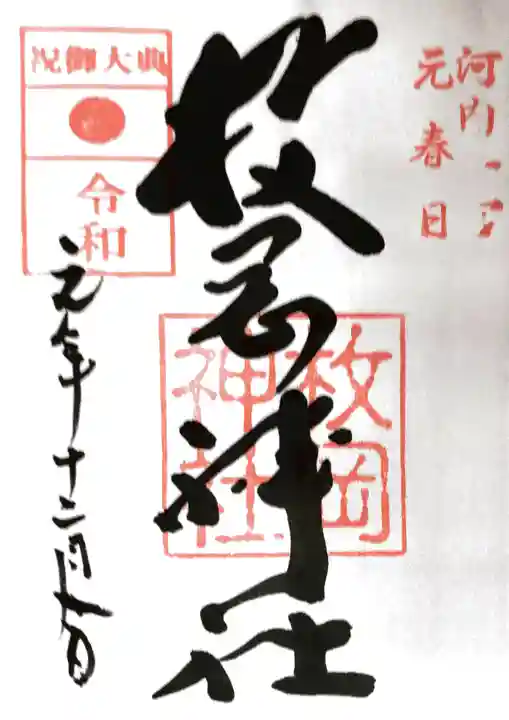 河内一宮
元春日
枚岡神社
枚岡
神社
祝御大典
令和
元年十二月七日